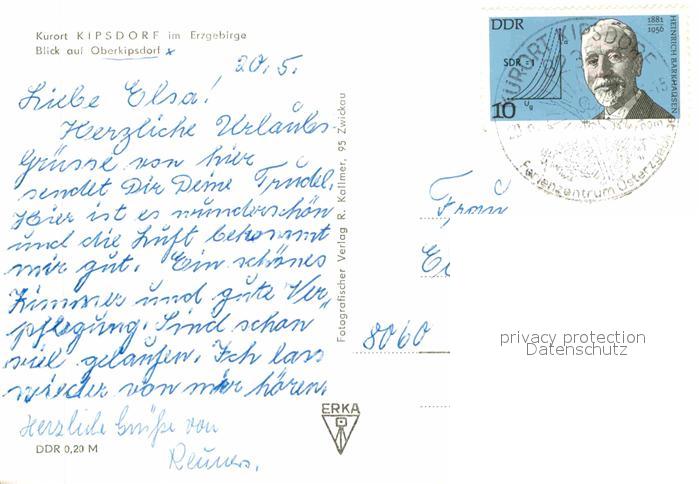 Kurort KIPSDORF im Erzgebirge
Blick auf Oberkipsdorf x
20.5.
Liebe Elsa!
Herzliche Urlaubs-
Grüsse von hier
sendet Dir Deine Trudel.
Hier ist es wunderschön
und die Luft bekommt
mir gut. Ein schönes
Zimmer und gute Ver-
pflegung. Sind schon
viel gelaufen. Ich lass
wieder von mir hören.
Herzliche Grüße von
DDR 0,20 M
Fotografischer Verlag R. Kallmer, 95 Zwickau
ERKA
DDR
SDR = 1
Ug
10
1881
1956
HEINRICH BARKHAUSEN
KURORT KIPSDORF
823
Ferienzentrum Osterzgeb
Frau
8060
privacy protection
Datenschutz